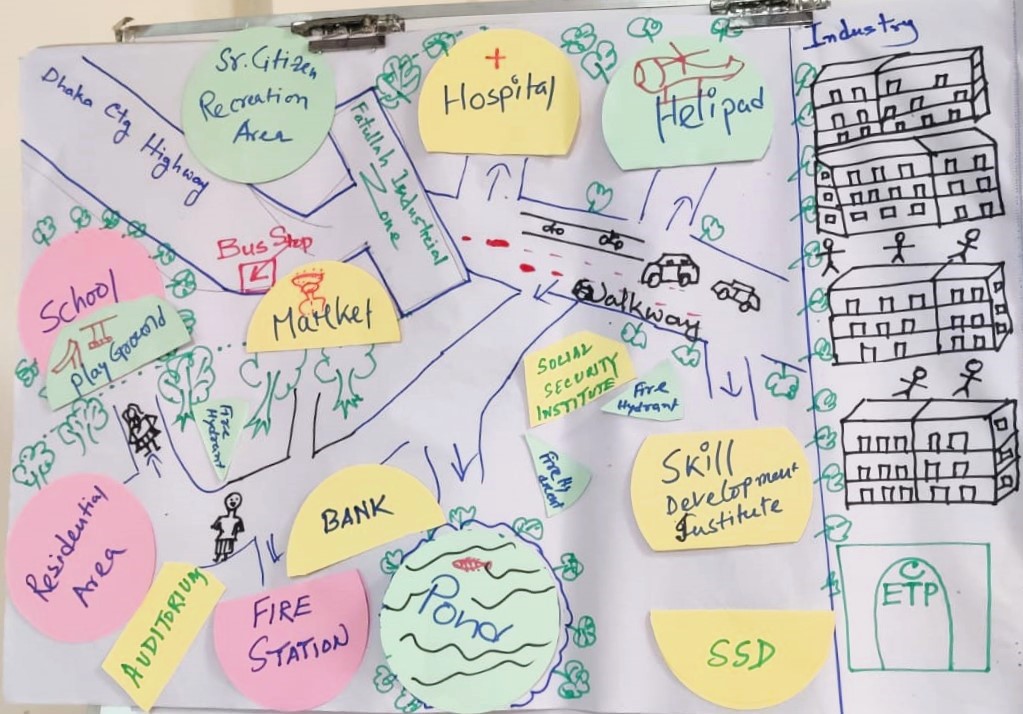 Industry
Sr. Citizen
Recreation
Area
Hospital
Helipad
Dhaka Ctg Highway
Fatullah Industrial
Zone
Bus Stop
School
Playground
Market
Walkway
SOCIAL
SECURITY
INSTITUTE
Fire
Hydrant
Fire
Hydrant
Fire Hy
drant
Skill
Development
Institute
BANK
Residential
Area
AUDITORIUM
FIRE
STATION
Pond
SSD
ETP